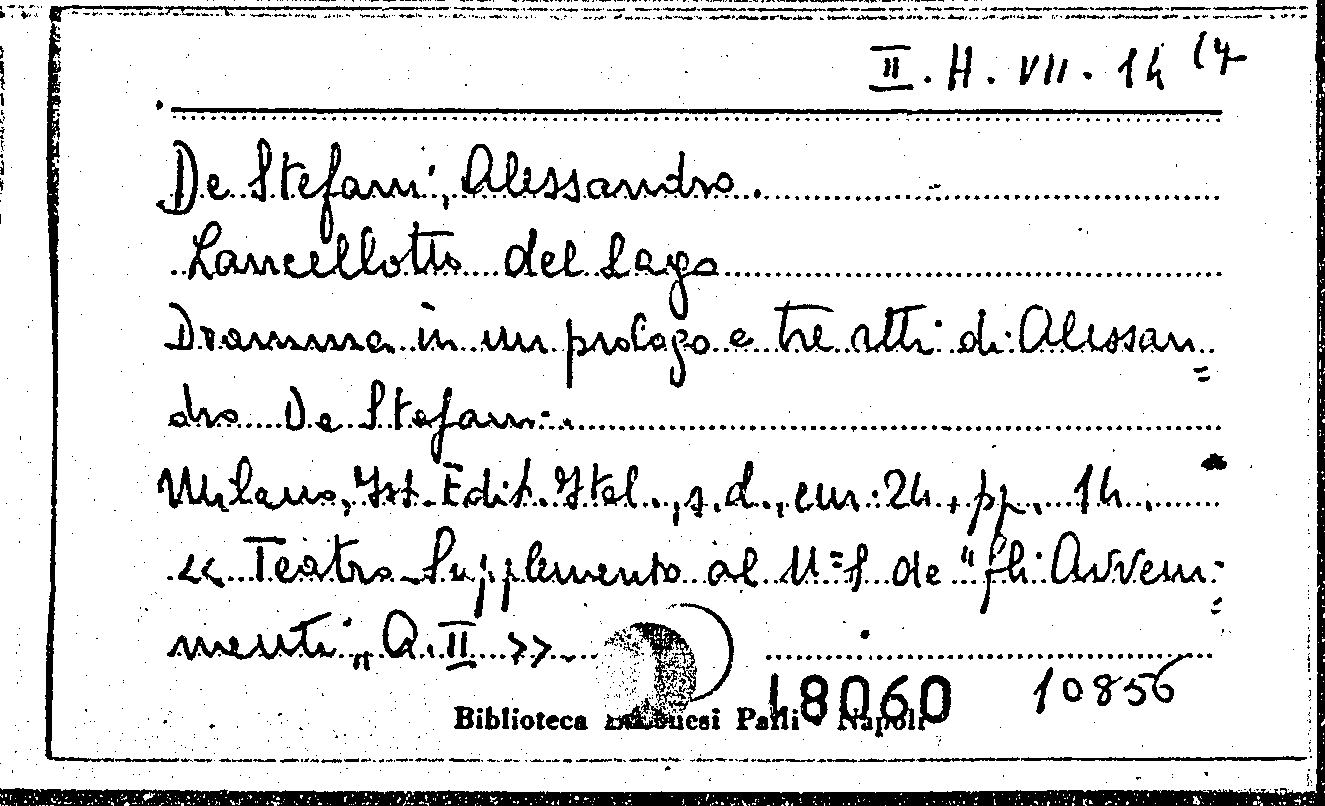 II. H. VII. 14 (4
De Stefani, Alessandro.
Lancellotto del Lago
Dramma in un prologo e tre atti di Alessan=
dro De Stefani.
Milano, Ist. Edit. Ital., s.d., cm. 24, pp. 14.
<< Teatro Supplemento al N=8 de "Gli Avveni=
menti„ A. II >>
18060 10856
Biblioteca Lucchesi Palli - Napoli